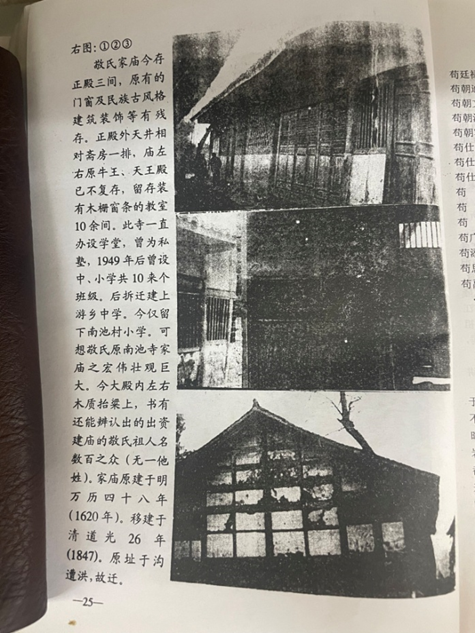 右图:①②③
敬氏家庙今存
正殿三间，原有的
门窗及民族古风格
建筑装饰等有残
存。正殿外天井相
对斋房一排，庙左
右原牛王、天王殿
已不复存，留存装
有木栅窗条的教室
10余间。此寺一直
办设学堂，曾为私
塾，1949年后曾设
中、小学共10来个
班级。后拆迁建上
游乡中学。今仅留
下南池村小学。可
想敬氏原南池寺家
庙之宏伟壮观巨
大。今大殿内左右
木质抬梁上，书有
还能辨认出的出资
建庙的敬氏祖人名
数百之众（无一他
姓）。家庙原建于明
万历四十八年
(1620年)。移建于
清道光26年
(1847)。原址于沟
遭洪，故迁。
—25—
苟廷
苟朝
苟朝
苟朝
苟朝
苟仕
苟仕
苟仕
苟
苟
苟
苟
苟
苟
苟